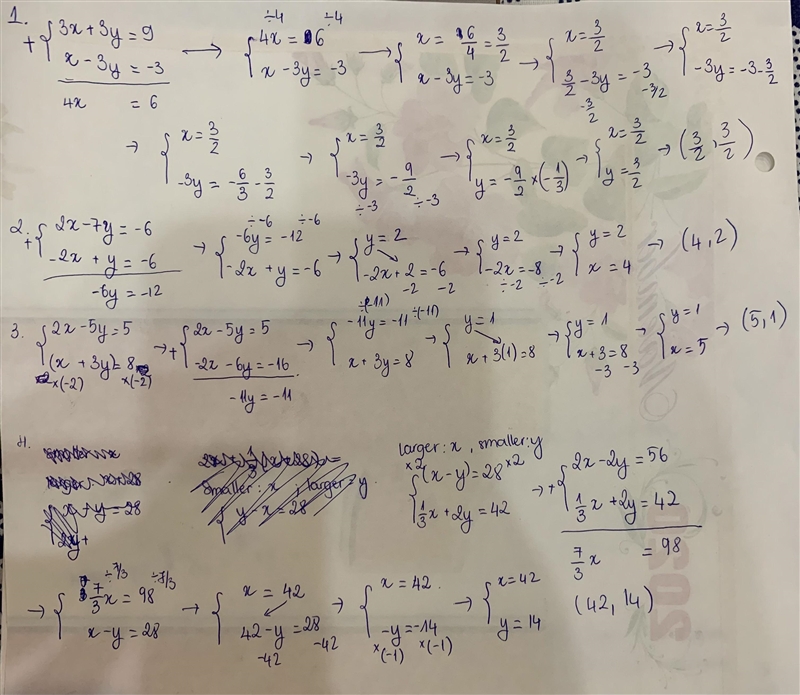 1.
+ { 3x + 3y = 9
x - 3y = -3
4x = 6
⟷ { ÷4 4x = 6 ÷4
x - 3y = -3
→ { x = 6/4 = 3/2
x - 3y = -3
→ { x = 3/2
3/2 - 3y = -3
-3/2 -3/2
→ { x = 3/2
-3y = -3 - 3/2
→ { x = 3/2
-3y = -6/3 - 3/2
→ { x = 3/2
-3y = -9/2
÷-3 ÷-3
→ { x = 3/2
y = -9/2 × (-1/3)
→ { x = 3/2
y = 3/2
→ (3/2, 3/2)
2.
+ { 2x - 7y = -6
-2x + y = -6
-6y = -12
→ { ÷-6 ÷-6
-6y = -12
-2x + y = -6
→ { y = 2
-2x + 2 = -6
-2 -2
→ { y = 2
-2x = -8
÷-2 ÷-2
→ { y = 2
x = 4
→ (4, 2)
3.
{ 2x - 5y = 5
(x + 3y) = 8
×(-2) ×(-2)
→ + { 2x - 5y = 5
-2x - 6y = -16
-11y = -11
→ { ÷(-11) ÷(-11)
-11y = -11
x + 3y = 8
→ { y = 1
x + 3(1) = 8
→ { y = 1
x + 3 = 8
-3 -3
→ { y = 1
x = 5
→ (5, 1)
4.
smaller: x ; larger = y
y - x = 28
larger: x, smaller: y
{ ×2 (x - y) = 28 ×2
1/3 x + 2y = 42
→ + { 2x - 2y = 56
1/3 x + 2y = 42
7/3 x = 98
→ { ÷7/3 ÷7/3
7/3 x = 98
x - y = 28
→ { x = 42
42 - y = 28
-42 -42
→ { x = 42
-y = -14
×(-1) ×(-1)
→ { x = 42
y = 14
(42, 14)